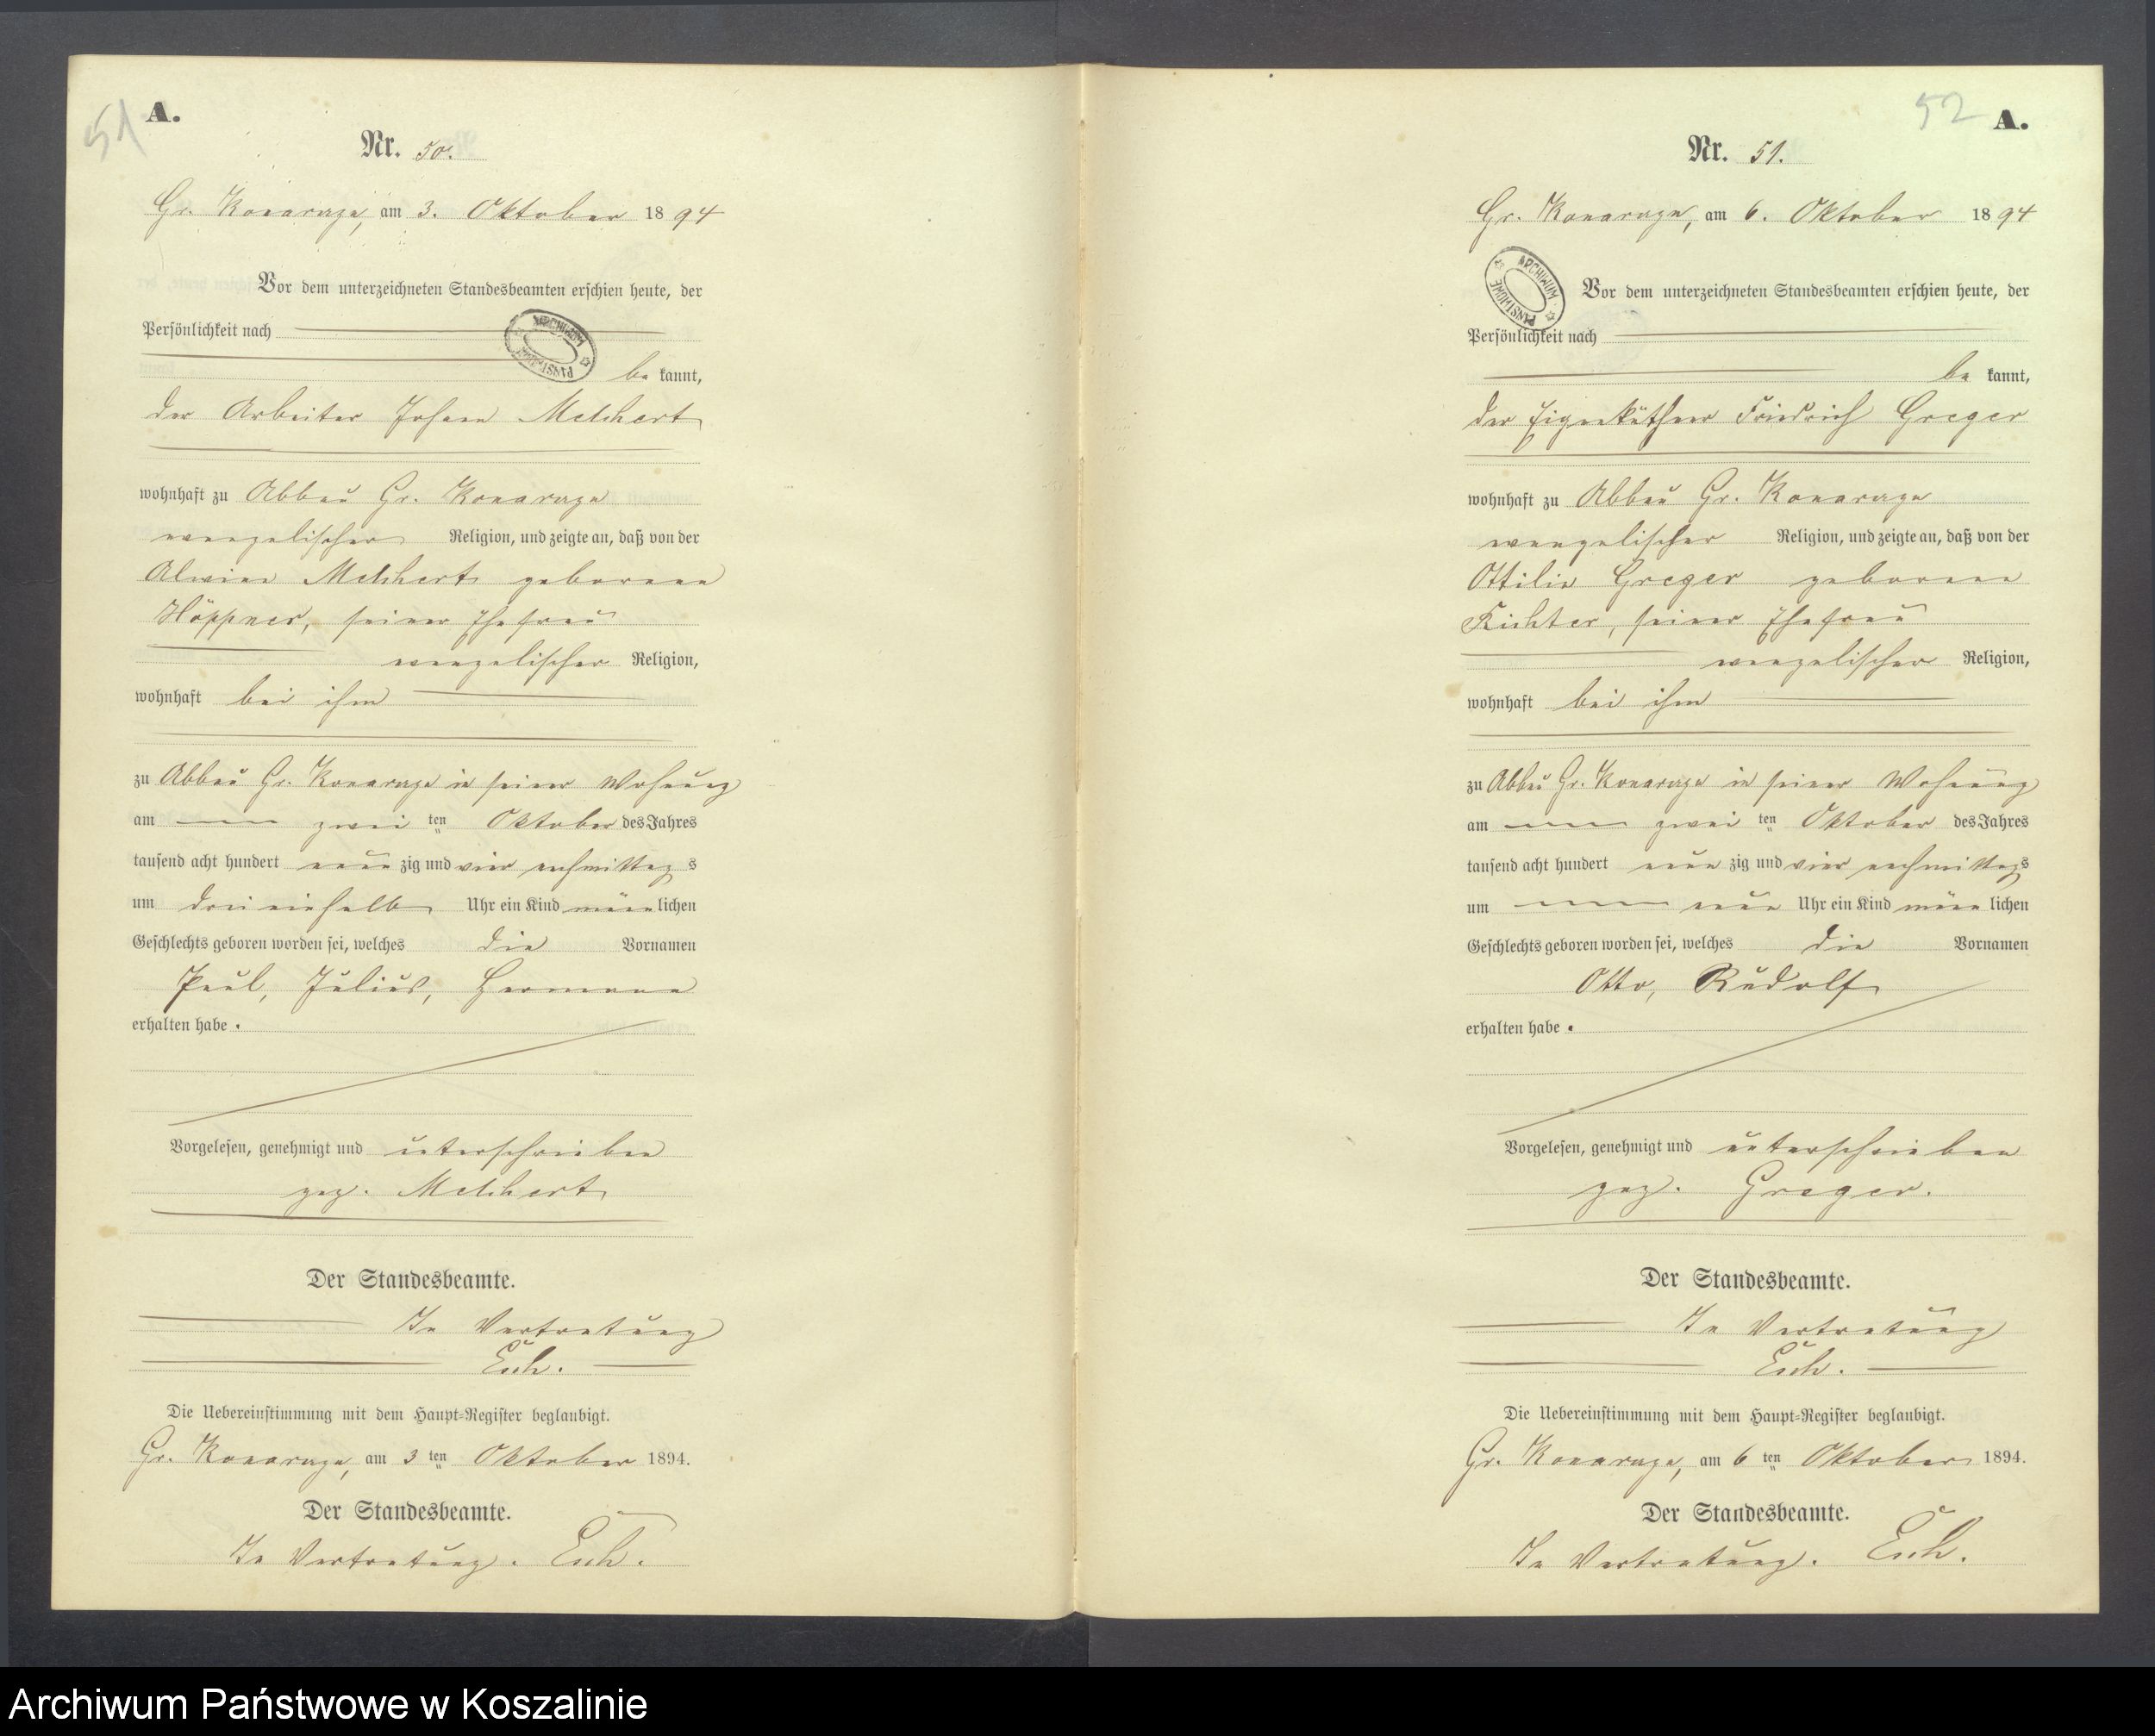 51
A.
Nr. 50.
Gr. Konarzyn, am 3. Oktober 1894
Vor dem unterzeichneten Standesbeamten erschien heute, der
Persönlichkeit nach
ARCHIWUM PAŃSTWOWE
be kannt,
der Arbeiter Johann Melchert
wohnhaft zu Abbau Gr. Konarzyn
evangelischer Religion, und zeigte an, daß von der
Alwine Melchert geborene
Höppner, seiner Ehefrau
evangelischer Religion,
wohnhaft bei ihm
zu Abbau Gr. Konarzyn in seiner Wohnung
am zwei ten Oktober des Jahres
tausend acht hundert neun zig und vier nachmittag s
um drei einhalb Uhr ein Kind männ lichen
Geschlechts geboren worden sei, welches die Vornamen
Paul, Julius, Hermann
erhalten habe.
Vorgelesen, genehmigt und unterschrieben
gez. Melchert
Der Standesbeamte.
In Vertretung
Esch.
Die Uebereinstimmung mit dem Haupt-Register beglaubigt.
Gr. Konarzyn, am 3 ten Oktober 1894.
Der Standesbeamte.
In Vertretung. Esch.
52
A.
Nr. 51.
Gr. Konarzyn, am 6. Oktober 1894
ARCHIWUM PAŃSTWOWE
Vor dem unterzeichneten Standesbeamten erschien heute, der
Persönlichkeit nach
be kannt,
der Eigenkäthner Friedrich Greger
wohnhaft zu Abbau Gr. Konarzyn
evangelischer Religion, und zeigte an, daß von der
Ottilie Greger geborene
Richter, seiner Ehefrau
evangelischer Religion,
wohnhaft bei ihm
zu Abbau Gr. Konarzyn in seiner Wohnung
am zwei ten Oktober des Jahres
tausend acht hundert neun zig und vier nachmittags
um neun Uhr ein Kind männ lichen
Geschlechts geboren worden sei, welches die Vornamen
Otto, Rudolf
erhalten habe.
Vorgelesen, genehmigt und unterschrieben
gez. Greger.
Der Standesbeamte.
In Vertretung
Esch.
Die Uebereinstimmung mit dem Haupt-Register beglaubigt.
Gr. Konarzyn, am 6 ten Oktober 1894.
Der Standesbeamte.
In Vertretung. Esch.
Archiwum Państwowe w Koszalinie